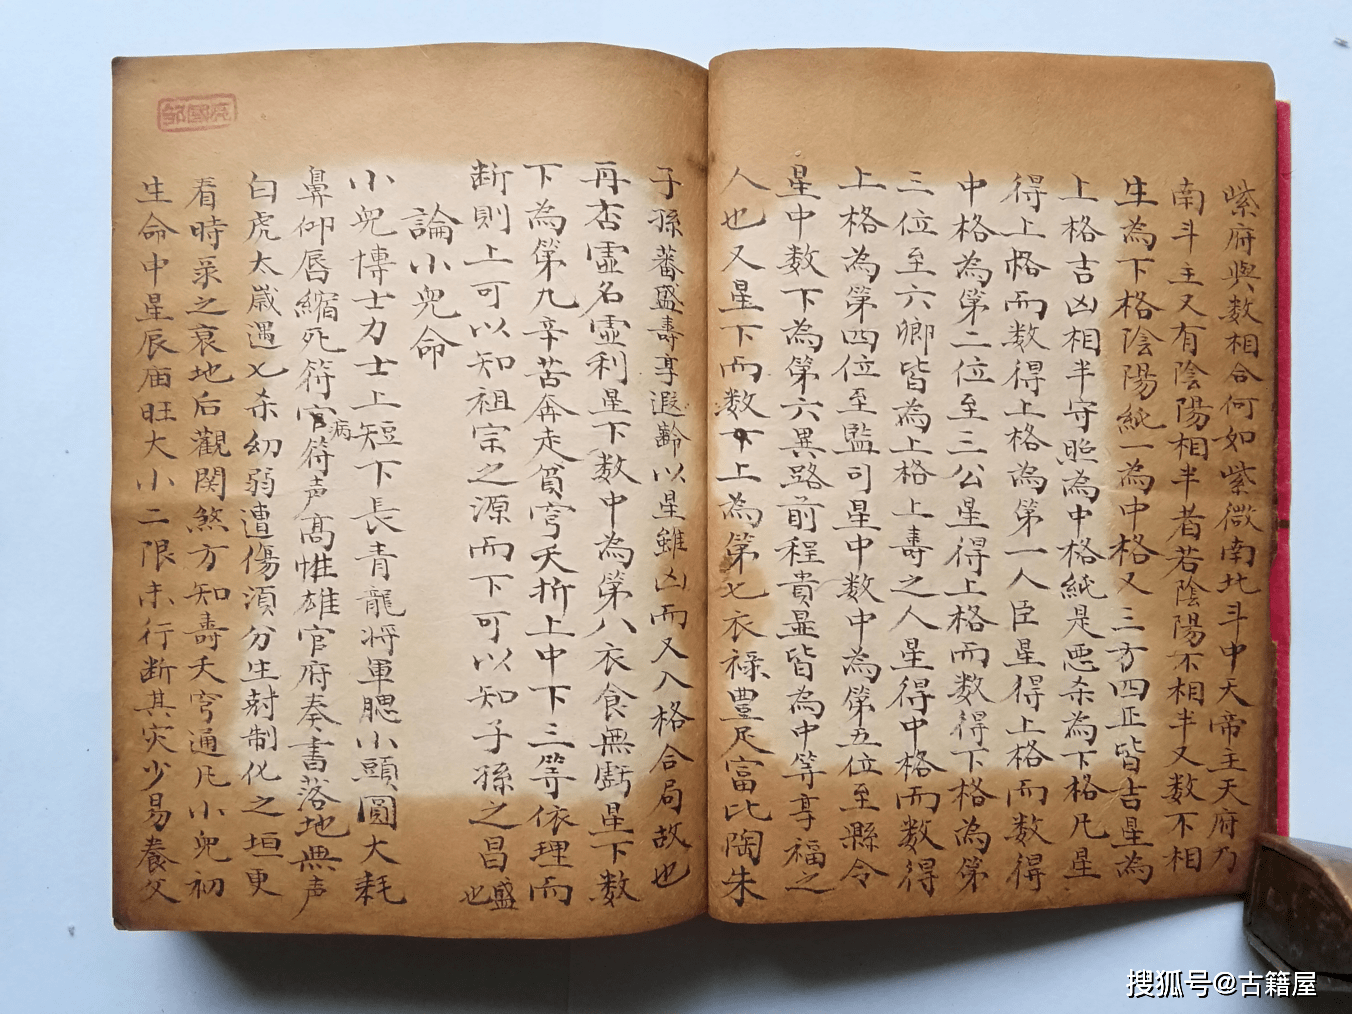 紫府與数相合何如紫微南北斗中天帝主天府乃
南斗主又有陰陽相半者若陰陽不相半又数不相
生為下格陰陽純一為中格又三方四正皆吉星為
上格吉凶相半守照為中格純是惡杀為下格凡星
得上格而数得上格為第一人臣星得上格而数得
中格為第二位至三公星得上格而数得下格為第
三位至六卿皆為上格上壽之人星得中格而数得
上格為第四位至監司星中数中為第五位至縣令
星中数下為第六異路前程貴显皆為中等享福之
人也又星下而数上為第七衣禄豊足富比陶朱
子孫蕃盛壽享遐齡以星雖凶而又入格合局故也
再否虚名虚利星下数中為第八衣食無虧星下数
下為第九辛苦奔走貧穹夭折上中下三等依理而
断則上可以知祖宗之源而下可以知子孫之昌盛也
論小兒命
小兒博士力士上短下長青龍将軍腮小頭圓大耗
鼻仰唇縮死符官符病声高惟雄官府奏書落地無声
白虎太歲遇七杀幼弱遭傷須分生尅制化之垣更
看時菉之衰地后觀関煞方知壽夭穹通凡小兒初
生命中星辰庙旺大小二限未行断其灾少易養父
搜狐号@古籍屋